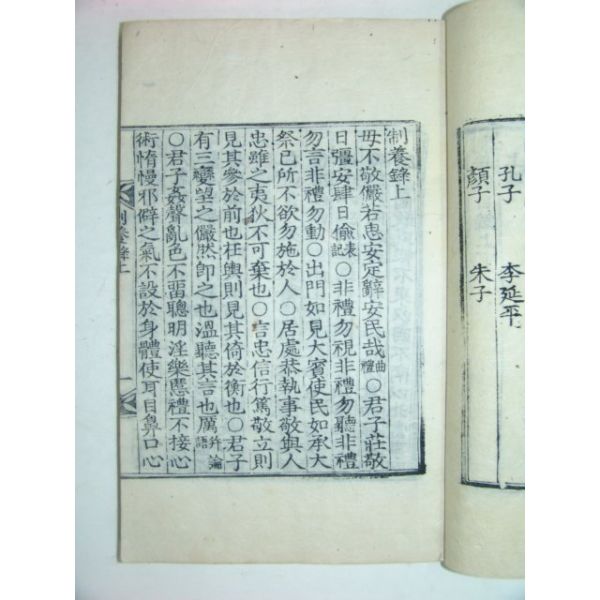 孔子　李延平
顔子　朱子
制養錄上
毋不敬儼若思安定辭安民哉曲禮〇君子莊敬
日彊安肆日偸表記〇非禮勿視非禮勿聽非禮
勿言非禮勿動〇出門如見大賓使民如承大
祭己所不欲勿施於人〇居處恭執事敬與人
忠雖之夷狄不可棄也〇言忠信行篤敬立則
見其參於前也在輿則見其倚於衡也〇君子
有三變望之儼然卽之也溫聽其言也厲幷論語
〇君子姦聲亂色不畱聰明淫樂慝禮不接心
術惰慢邪僻之氣不設於身體使耳目鼻口心
制養錄上
一